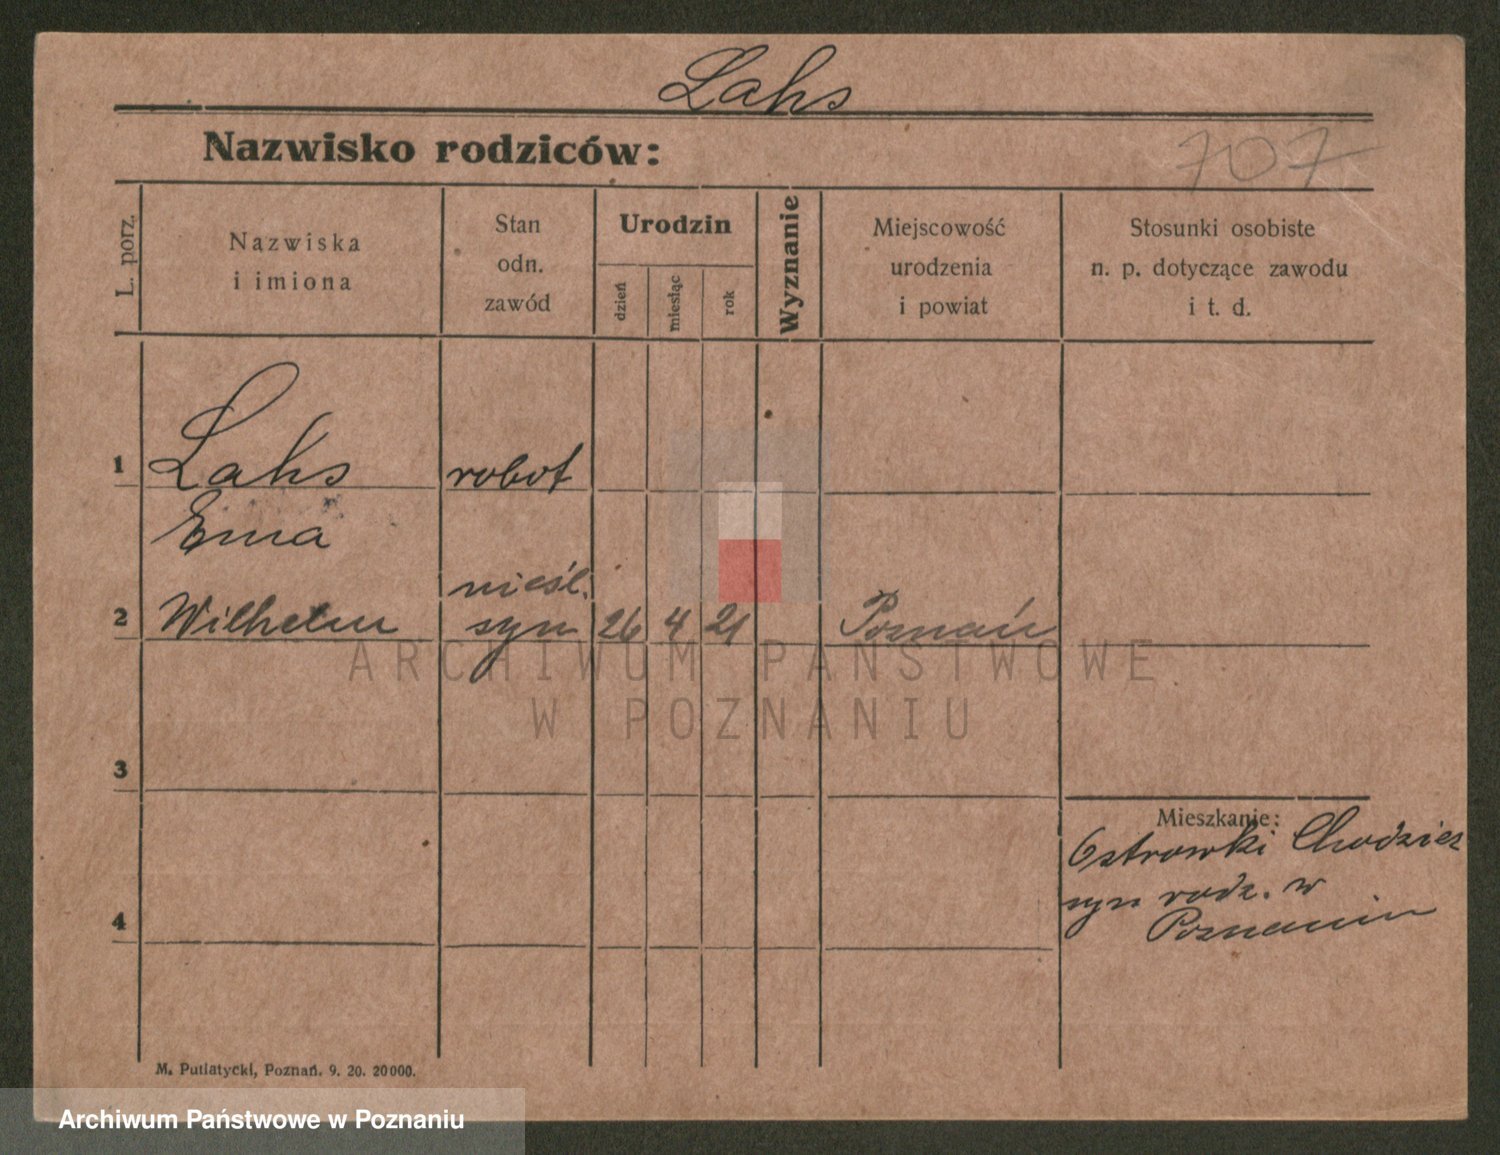 Lahs
Nazwisko rodziców:
707
L. porz.
Nazwiska
i imiona
Stan
odn.
zawód
Urodzin
dzień
miesiąc
rok
Wyznanie
Miejscowość
urodzenia
i powiat
Stosunki osobiste
n. p. dotyczące zawodu
i t. d.
1
Lahs
robot
Ema
nieśl.
2
Wilhelm
syn
26
4
21
Poznań
ARCHIWUM PAŃSTWOWE
W POZNANIU
3
Mieszkanie:
Ostrowki Chodzież
syn rodz. w
Poznaniu
4
M. Putiatycki, Poznań. 9. 20. 20000.
Archiwum Państwowe w Poznaniu